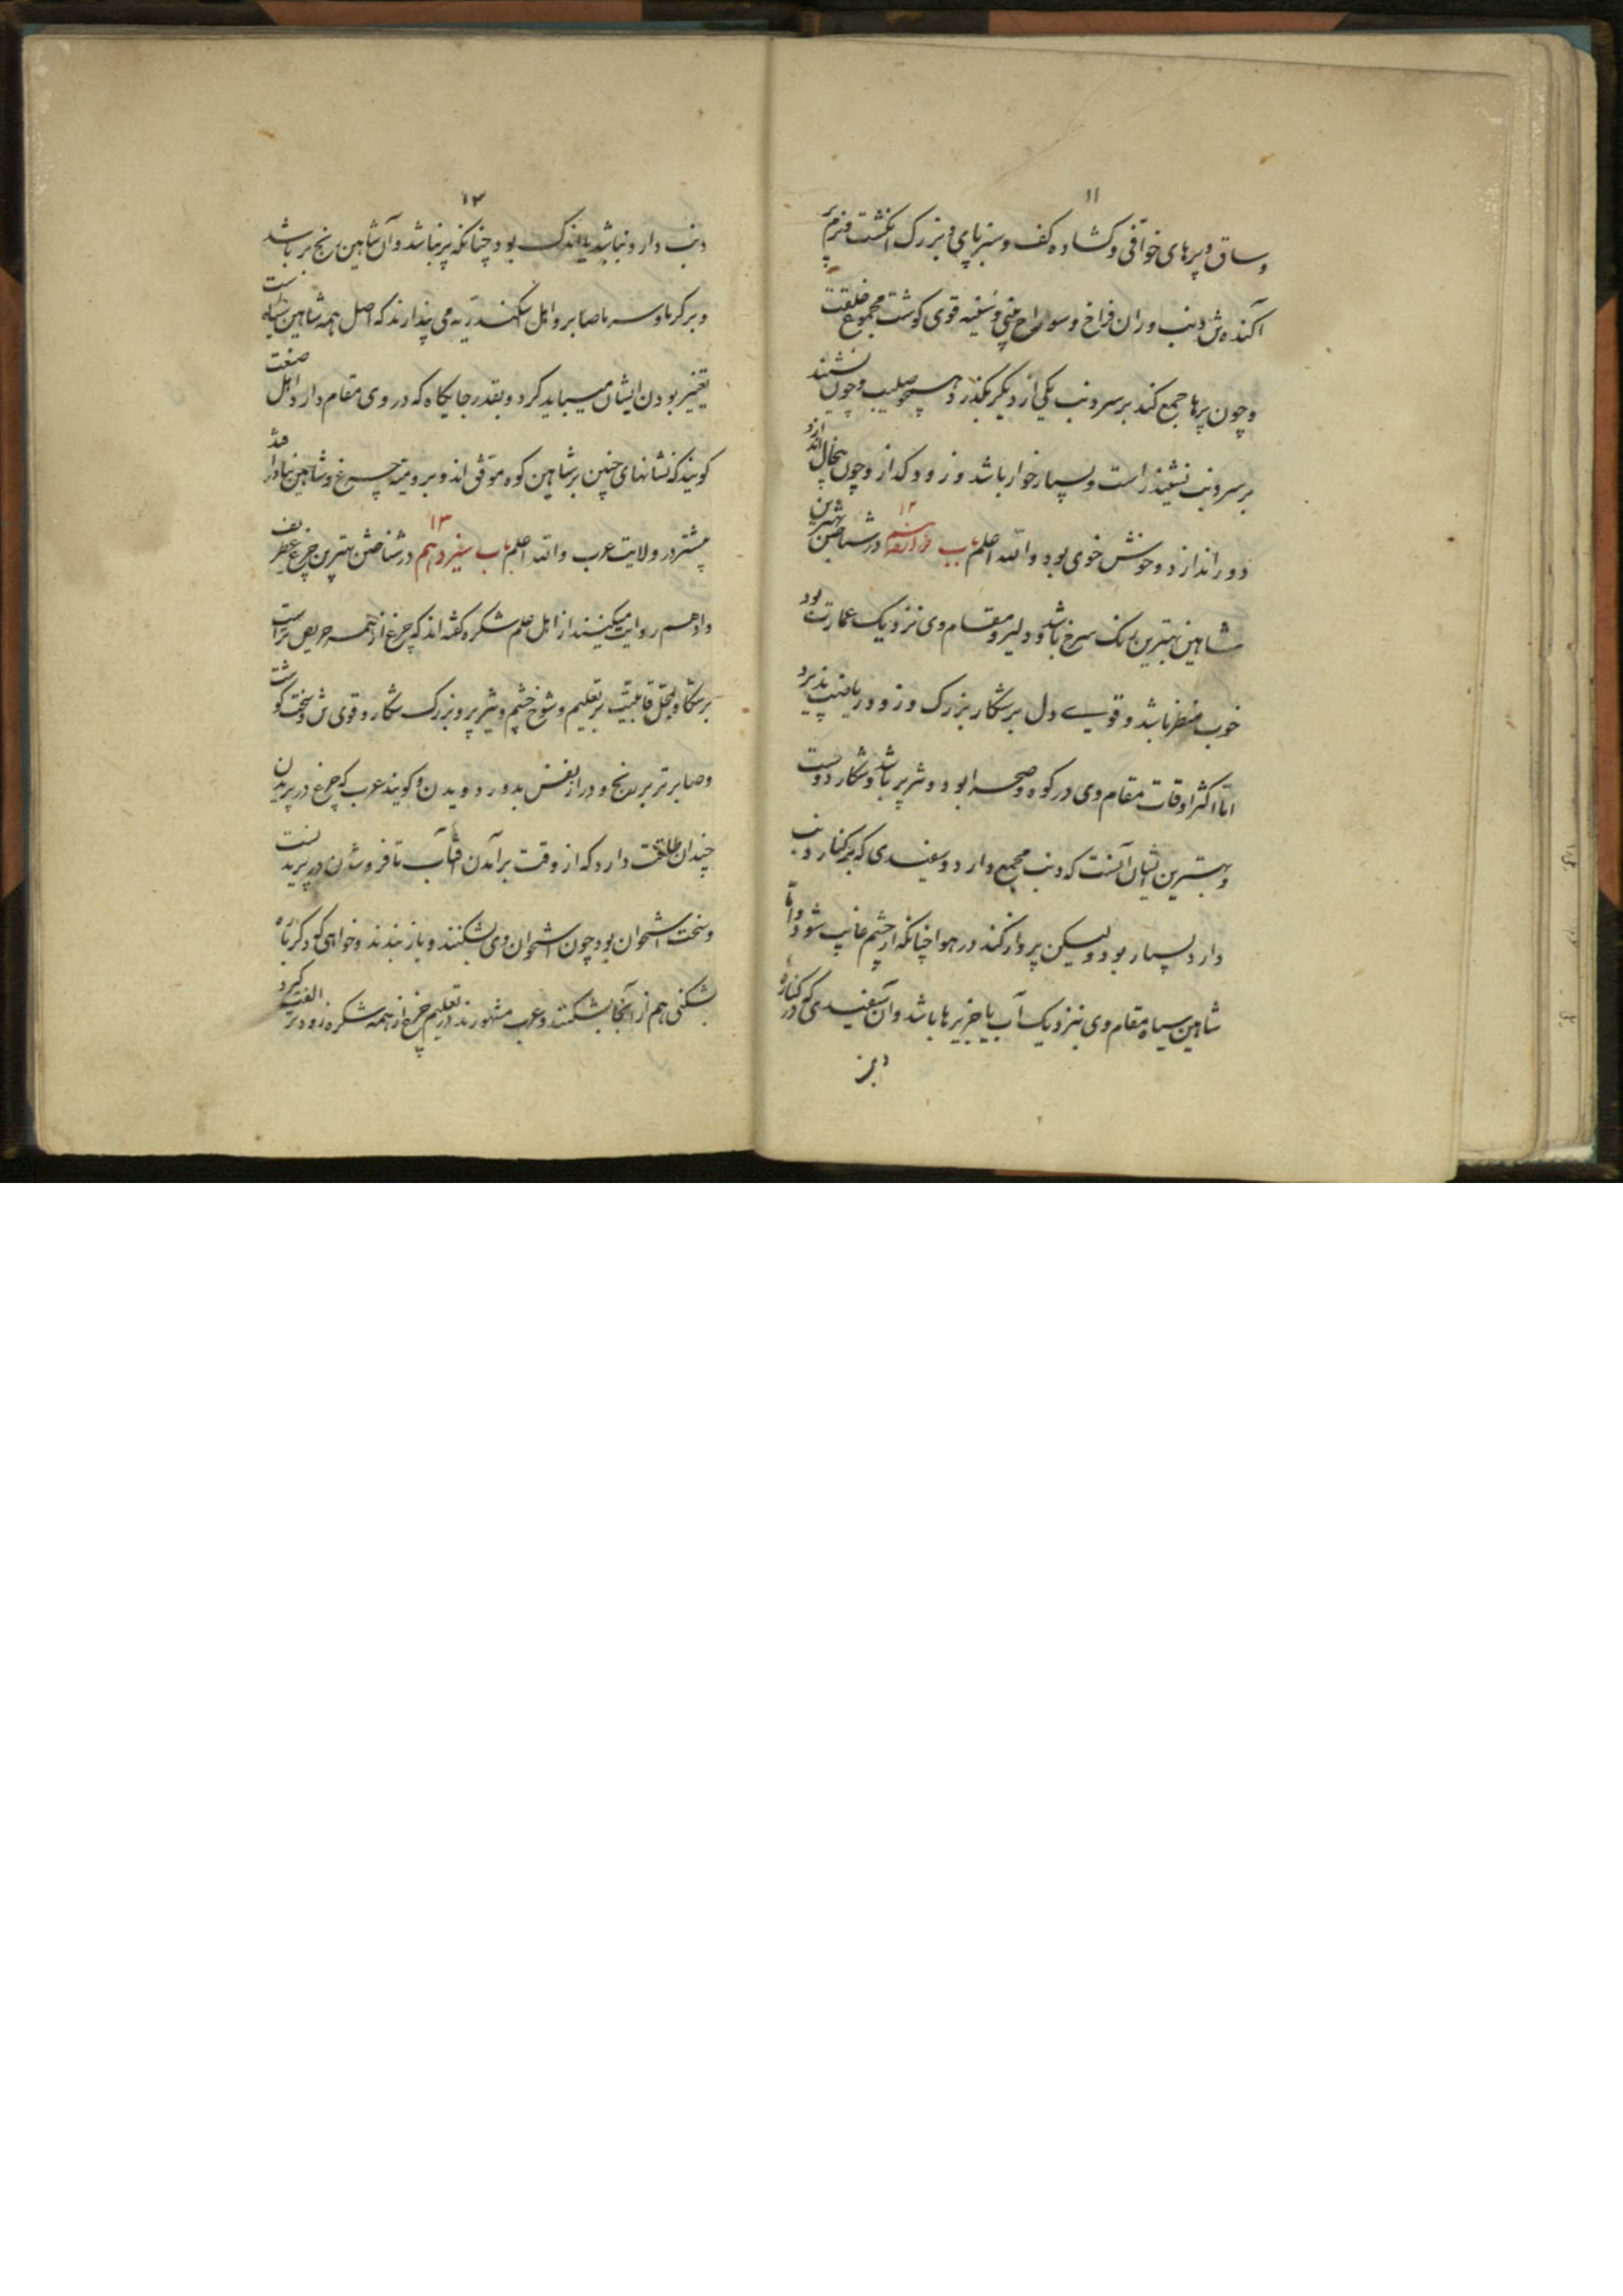 ۱۱
وساق و پرهای خوافی و کشاده کف و سبز پای و بزرک انکشت و نرم پر
آکنده ش دنب و ران فراخ و سوراخ بینی و سینه قوی کوشت مجموع خلقت
و چون پرها جمع کند بر سر دنب یکی از دیکر بکذرد همچو صلیب و چون نشیند
بر سر دنب نشیند راست و بسیار خوار باشد و زود کداز و چون پیخال اندازد
دور اندازد و خوش خوی بود والله اعلم باب دوازدهم ۱۲ در شناختن بهترین
شاهین بهترین رنک سرخ باشد و دلیر و مقام وی نزدیک عمارت بود
خوب منظر باشد و قوی دل بر شکار بزرک و زود ریاضت پذیرد
اما اکثر اوقات مقام وی در کوه و صحرا بود و تیز پر باشد و شکار دوست
و بهترین ایشان آنست که دنب مجمع دارد و سفیدی که بر کنار دنب
دارد بسیار بود و لیکن پرواز کند در هوا چنانکه از چشم غایب شود و اما
شاهین سیاه مقام وی بنزدیک آب یا جزیرها باشد و آن سفیدی که در کناره
۱۲
دنب دارد نباشد یا اندک بود چنانکه پر نباشد و آن شاهین رنج بر باشد
و بر کرما و سرما صابر و اهل اسکندریه می پندارند که اصل همه شاهین سیاه است
تغییر بودن ایشان میباید کرد و بقدر جایکاه که در وی مقام دارد و اهل صنعت
کویند که نشانهای چنین بر شاهین کوه موقی اند و برومیه چرغ و شاهین
بیشتر در ولایت عرب والله اعلم باب سیزدهم ۱۳ در شناختن بهترین چرغ
وادهم روایت میکنند از اهل علم شکره کفته اند که چرغ از همه حریص تر است
بر شکار و قابلیت بر تعلیم و شوخ چشم و تیز پر و بزرک شکار و قوی ش و سخت کوشت
و صابرتر بر رنج و دراز نفس بدور دویدن و کویند عرب که چرغ در پریدن
چندان طاقت دارد که از وقت برآمدن آفتاب تا فرو شدن در پریدنست
و سخت استخوان بود چون استخوان وی بشکنند و باز بندند و خواهی که دکرباره
شکنی هم از آنجا بشکنند و عرب مشهورند در تعلیم چرغ از همه شکره زودتر الفت کیرد